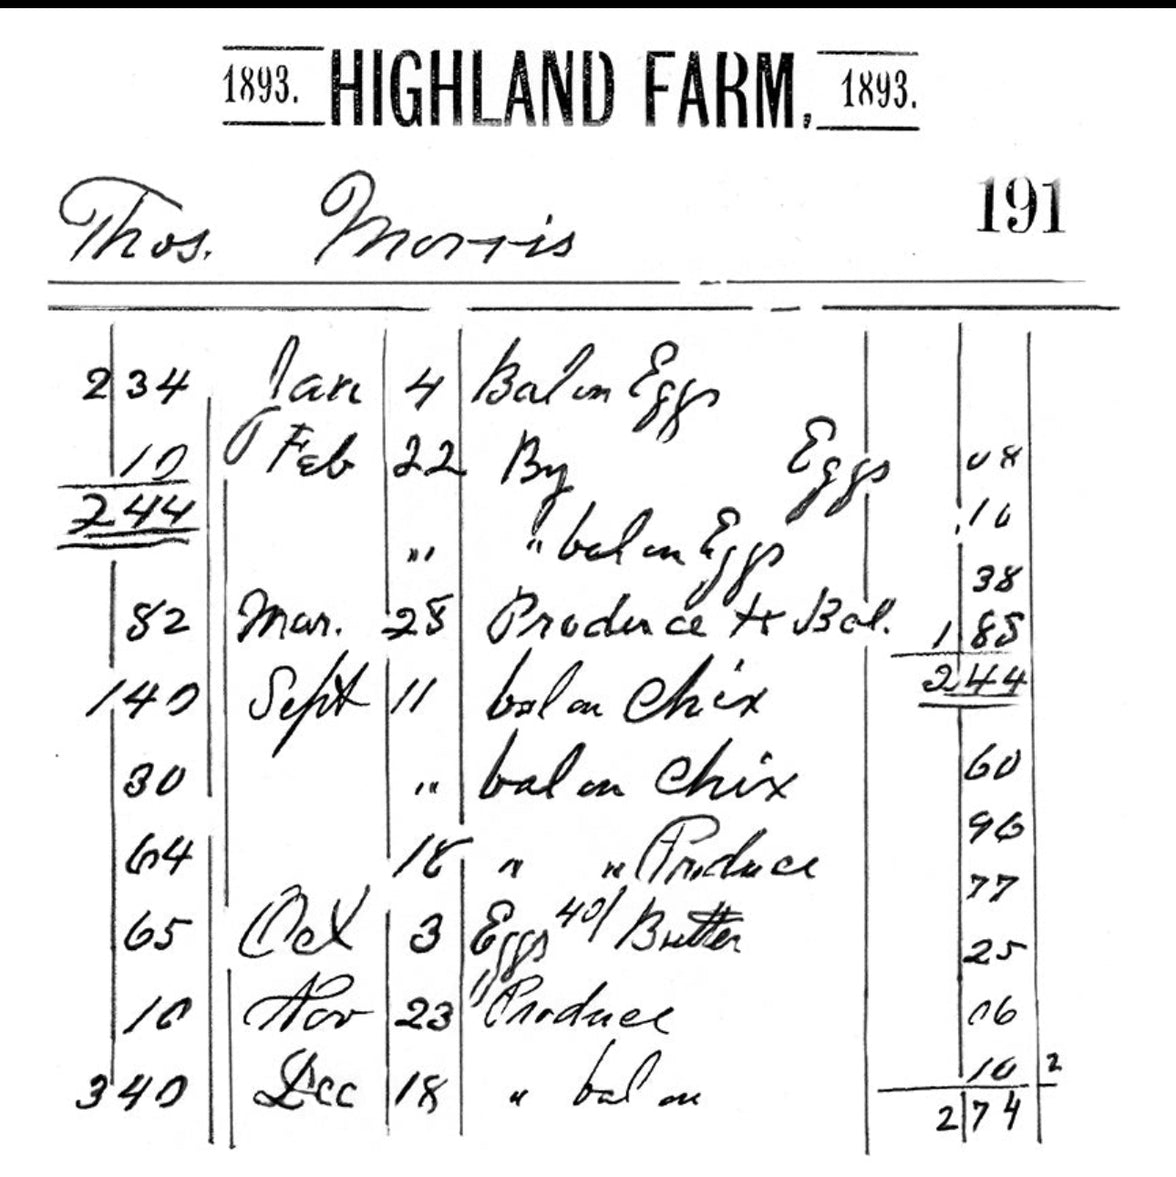 1893. HIGHLAND FARM, 1893.
Thos. Morris 191
2 34 Jan 4 Bal on Eggs
10 Feb 22 By Eggs 08
2 44 .10
" " bal on Eggs
38
82 Mar. 28 Produce to Bal. 1 88
1 40 Sept 11 bal on Chix 2 44
30 " bal on Chix 60
96
64 18 " " Produce
77
65 Oct 3 Eggs 40/ Butter 25
10 Nov 23 Produce 06
10 2
3 40 Dec 18 " bal on 2 74